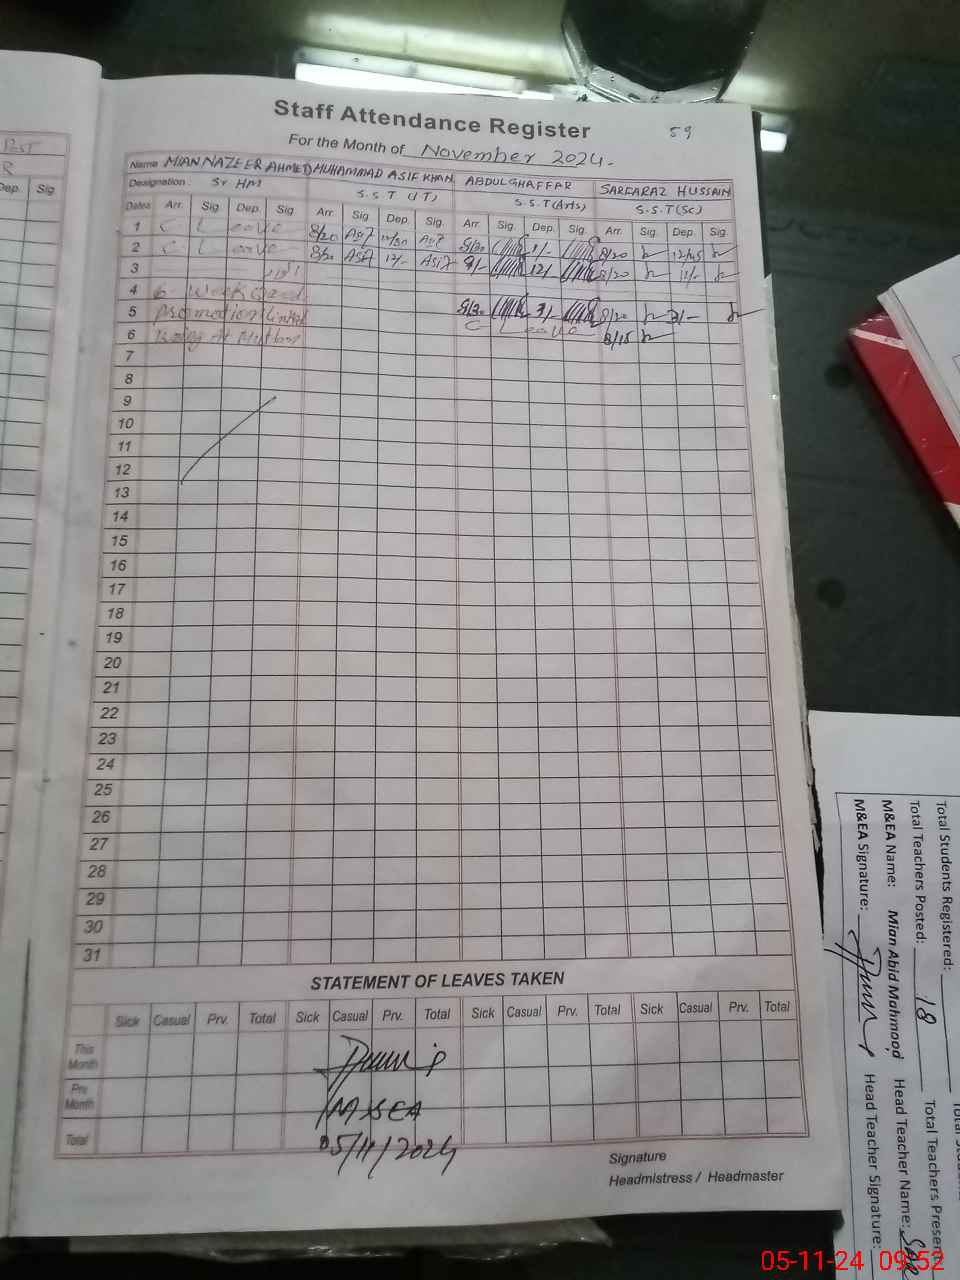 Staff Attendance Register
59
For the Month of November 2024.
Name MIAN NAZEER AHMED MUHAMMAD ASIF KHAN ABDUL GHAFFAR SARFARAZ HUSSAIN
Designation: Sr HM S.S.T (IT) S.S.T (Arts) S.S.T (Sc)
Dates Arr. Sig. Dep. Sig. Arr. Sig. Dep. Sig. Arr. Sig. Dep. Sig. Arr. Sig. Dep. Sig.
1 C. Leave 8/20 Asif Asif 8/30 1/- 8/20 12/45
2 C Leave 8/20 Asif 12/- Asif 8/- 12/- 8/20 11/-
3
4 6- Week
5 Promotion Linked 8/30 3/- 8/20 3/-
6 At Multan C Leave 8/15
7
8
9
10
11
12
13
14
15
16
17
18
19
20
21
22
23
24
25
26
27
28
29
30
31
STATEMENT OF LEAVES TAKEN
Sick Casual Prv. Total Sick Casual Prv. Total Sick Casual Prv. Total Sick Casual Prv. Total
This Month
Pre Month
Total
M&EA
05/11/2024
Signature
Headmistress / Headmaster
Dep. Sig
Total Students Registered:
Total Teachers Posted: 18 Total Teachers Present
M&EA Name: Mian Abid Mahmood Head Teacher Name:
M&EA Signature: Head Teacher Signature:
05-11-24 09:52